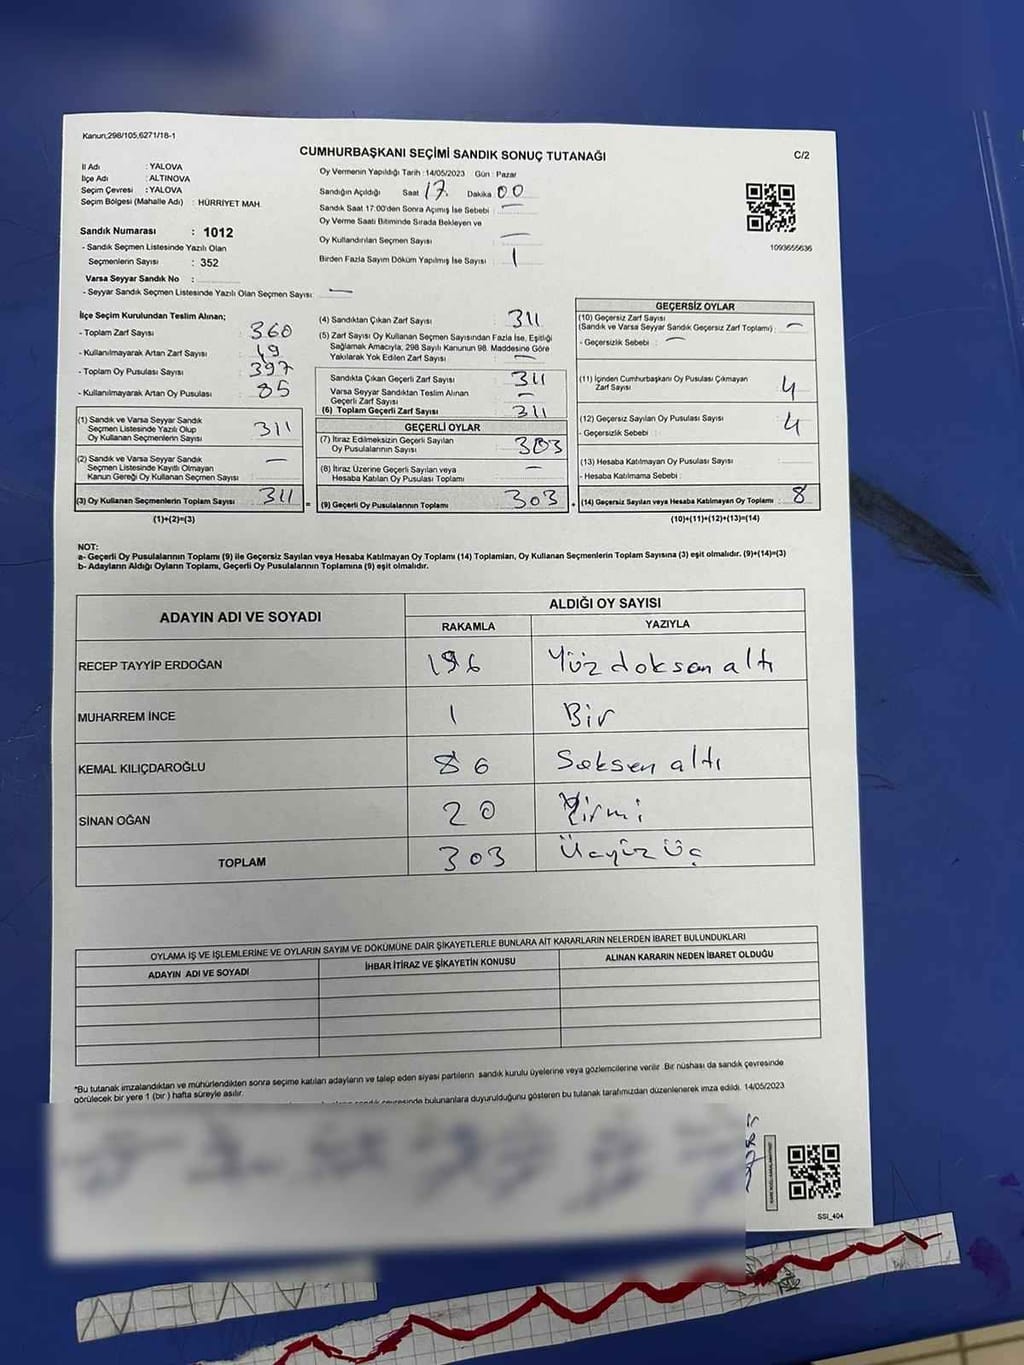 Kanun;298/105,6271/18-1
CUMHURBAŞKANI SEÇİMİ SANDIK SONUÇ TUTANAĞI
C/2
İl Adı : YALOVA
İlçe Adı : ALTINOVA
Seçim Çevresi : YALOVA
Seçim Bölgesi (Mahalle Adı) : HÜRRİYET MAH.
Sandık Numarası : 1012
- Sandık Seçmen Listesinde Yazılı Olan
Seçmenlerin Sayısı : 352
Varsa Seyyar Sandık No :
- Seyyar Sandık Seçmen Listesinde Yazılı Olan Seçmen Sayısı: —
Oy Vermenin Yapıldığı Tarih :14/05/2023 Gün : Pazar
Sandığın Açıldığı Saat 17. Dakika 00
Sandık Saat 17:00'den Sonra Açılmış İse Sebebi : —
Oy Verme Saati Bitiminde Sırada Bekleyen ve
Oy Kullandırılan Seçmen Sayısı —
Birden Fazla Sayım Döküm Yapılmış İse Sayısı : 1
1093655636
İlçe Seçim Kurulundan Teslim Alınan;
- Toplam Zarf Sayısı 360
- Kullanılmayarak Artan Zarf Sayısı 49
- Toplam Oy Pusulası Sayısı 397
- Kullanılmayarak Artan Oy Pusulası 85
(1) Sandık ve Varsa Seyyar Sandık
Seçmen Listesinde Yazılı Olup
Oy Kullanan Seçmenlerin Sayısı 311
(2) Sandık ve Varsa Seyyar Sandık
Seçmen Listesinde Kayıtlı Olmayan
Kanun Gereği Oy Kullanan Seçmen Sayısı —
(3) Oy Kullanan Seçmenlerin Toplam Sayısı 311 =
(1)+(2)=(3)
(4) Sandıktan Çıkan Zarf Sayısı 311
(5) Zarf Sayısı Oy Kullanan Seçmen Sayısından Fazla İse, Eşitliği
Sağlamak Amacıyla; 298 Sayılı Kanunun 98. Maddesine Göre
Yakılarak Yok Edilen Zarf Sayısı —
Sandıkta Çıkan Geçerli Zarf Sayısı 311
Varsa Seyyar Sandıktan Teslim Alınan
Geçerli Zarf Sayısı —
(6) Toplam Geçerli Zarf Sayısı 311
GEÇERLİ OYLAR
(7) İtiraz Edilmeksizin Geçerli Sayılan
Oy Pusulalarının Sayısı 303
(8) İtiraz Üzerine Geçerli Sayılan veya
Hesaba Katılan Oy Pusulası Toplamı —
(9) Geçerli Oy Pusulalarının Toplamı 303 +
GEÇERSİZ OYLAR
(10) Geçersiz Zarf Sayısı
(Sandık ve Varsa Seyyar Sandık Geçersiz Zarf Toplamı) : —
- Geçersizlik Sebebi : —
(11) İçinden Cumhurbaşkanı Oy Pusulası Çıkmayan
Zarf Sayısı 4
(12) Geçersiz Sayılan Oy Pusulası Sayısı 4
- Geçersizlik Sebebi :
(13) Hesaba Katılmayan Oy Pusulası Sayısı
- Hesaba Katılmama Sebebi :
(14) Geçersiz Sayılan veya Hesaba Katılmayan Oy Toplamı 8
(10)+(11)+(12)+(13)=(14)
NOT:
a- Geçerli Oy Pusulalarının Toplamı (9) ile Geçersiz Sayılan veya Hesaba Katılmayan Oy Toplamı (14) Toplamları, Oy Kullanan Seçmenlerin Toplam Sayısına (3) eşit olmalıdır. (9)+(14)=(3)
b- Adayların Aldığı Oyların Toplamı, Geçerli Oy Pusulalarının Toplamına (9) eşit olmalıdır.
ADAYIN ADI VE SOYADI
ALDIĞI OY SAYISI
RAKAMLA YAZIYLA
RECEP TAYYİP ERDOĞAN 196 Yüz doksan altı
MUHARREM İNCE 1 Bir
KEMAL KILIÇDAROĞLU 86 Seksen altı
SİNAN OĞAN 20 Yirmi
TOPLAM 303 Üçyüz üç
OYLAMA İŞ VE İŞLEMLERİNE VE OYLARIN SAYIM VE DÖKÜMÜNE DAİR ŞİKAYETLERLE BUNLARA AİT KARARLARIN NELERDEN İBARET BULUNDUKLARI
ADAYIN ADI VE SOYADI İHBAR İTİRAZ VE ŞİKAYETİN KONUSU ALINAN KARARIN NEDEN İBARET OLDUĞU
*Bu tutanak imzalandıktan ve mühürlendikten sonra seçime katılan adayların ve talep eden siyasi partilerin sandık kurulu üyelerine veya gözlemcilerine verilir. Bir nüshası da sandık çevresinde
görülecek bir yere 1 (bir) hafta süreyle asılır.
bulunanlara duyurulduğunu gösteren bu tutanak tarafımızdan düzenlenerek imza edildi. 14/05/2023
SSI_404